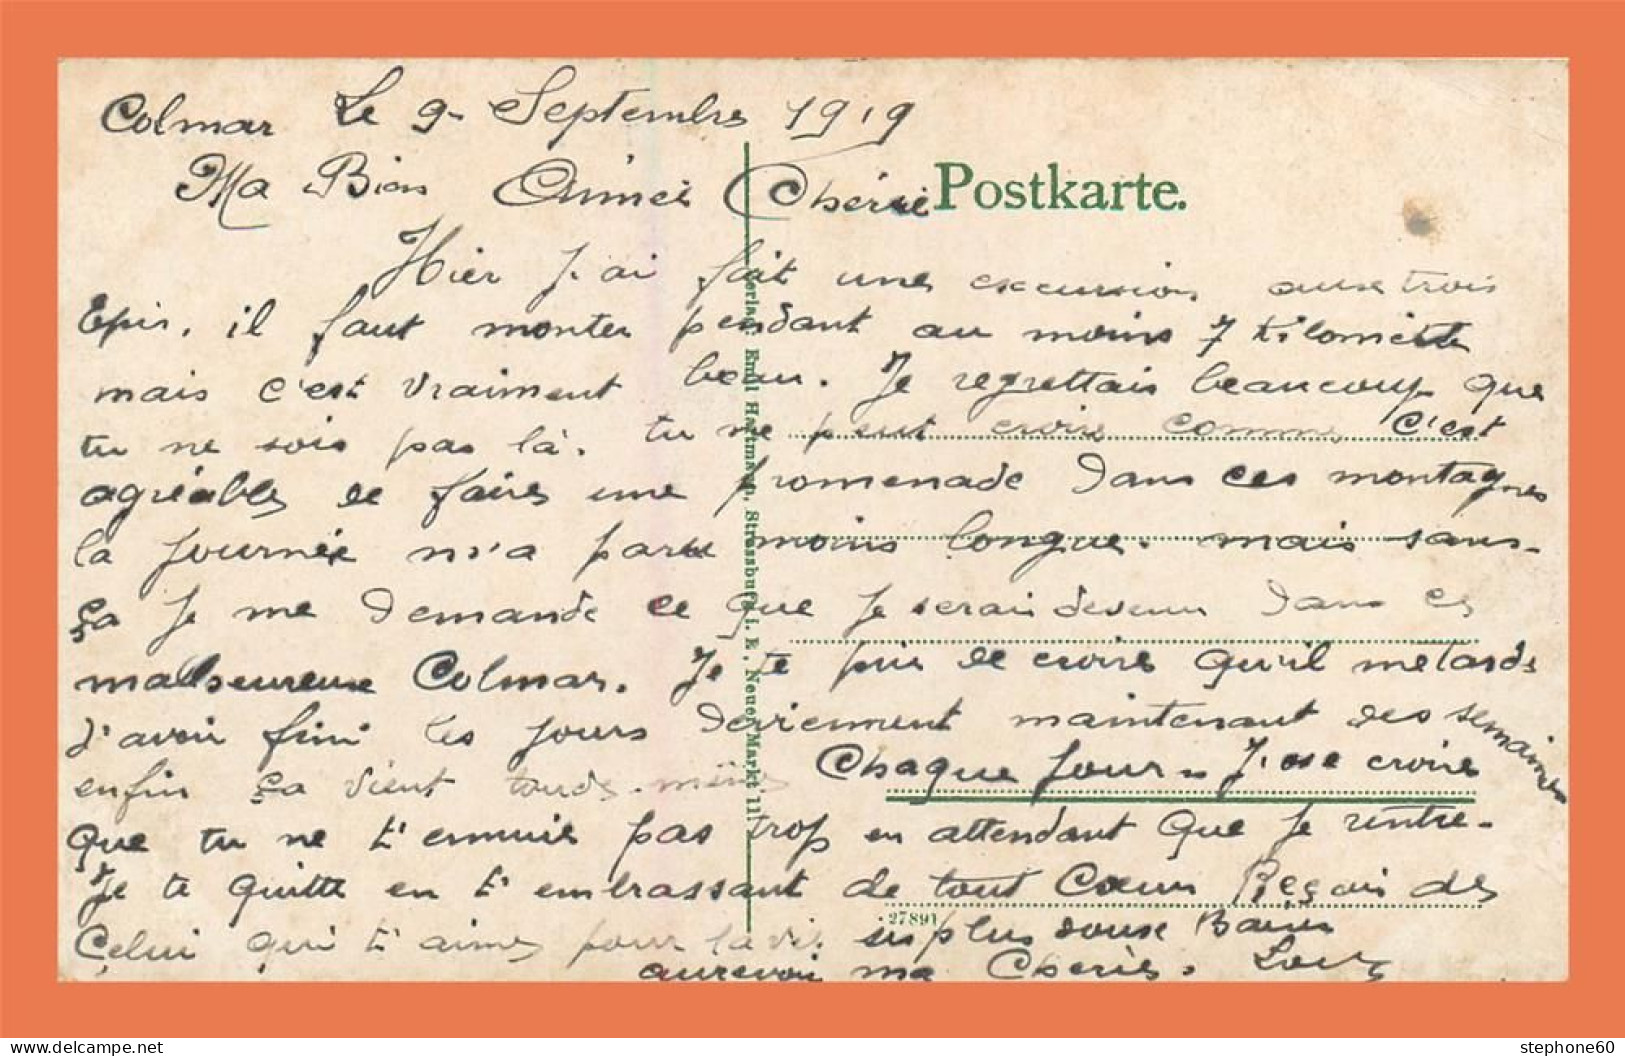 Colmar Le 9 Septembre 1919
Ma Bien Aimée Chérie
Postkarte.
Hier J'ai fait une excursion ause trois
Epis, il faut monter pendant au moins 7 Kilomètre
mais c'est vraiment beau. Je regrettais beaucoup que
tu ne sois pas là. tu ne peut croire comme c'est
agréable de faire une promenade dans ces montagnes
la journée m'a paru moins longue. mais sans-
ça Je me demande ce que Je serais devenu dans ce
malheureuse Colmar. Je te prie de croire qu'il me tarde
d'avoir fini les jours deviennent maintenant des semaines
enfin ça vient tout de même Chaque Jour. J'ose croire
Que tu ne t'ennuie pas trop en attendant que Je rentre-
Je te quitte en t'embrassant de tout Cœur Reçois de
Celui qui t'aime pour la vie ses plus doux Baisers
aurevoir ma Cherie. Louis
Verlag: Emil Hartmann, Strassburg i. E., Neuer Markt 11.
27891
stephone60